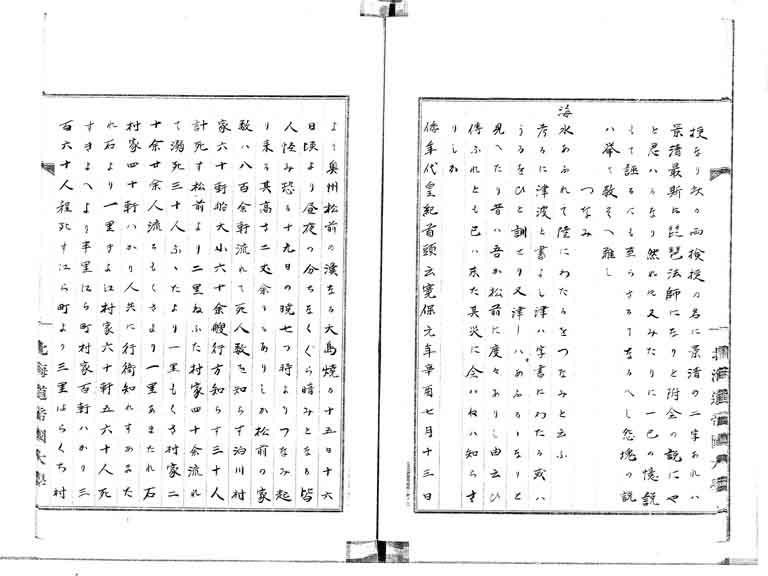 授なり次の両検授の名に景清の二字あれハ
景清最斯に琵琶法師になりと附会の説にや
と思ハるゝなり然れ共又みたりに一己の憶説
もて誣るにも至らさるてなるへし怨塊の説
ハ挙て数そへ難し
つなみ
海水あふれて陸にわたるをつなみと云ふ
考るに津波と書よし津ハ字書にわたる或ハ
うるをひと訓せり又津ーハあふるゝーなりと
見へたり昔ハ吾か松前に度々ありし由云ひ
傳ふれとも己ハ未た其災に会ハねハ知らす
りしか
倭年代皇紀首頭云寛保元年辛酉七月十三日
よて奥州松前の濱なる大島焼る十五日十六
日頃より昼夜の分ちなくくら暗みとなる皆
人怪み恐る十九日の暁七つ時よりつなみ起
り来る其高さ二丈余もありしか松前の家
数ハ八百余軒流れて死人数を知らす泊川村
家六十軒船大小六十余艘行方知らす三十人
計死す松前より二里ねふた村家四十余流れ
て溺死三十人ふゝたより一里もくさ村家二
十余廿余人流るもくさより一里あまたれ石
村家四十軒ハかり人共に行衛知れすあまた
れ石より一里すよ江村家六十軒五六十人死
すきよへより半里江ら町村家百軒ハかり三
百六十人程死す江ら町より三里はらくち村
北海道帝国大学
北海道帝国大学